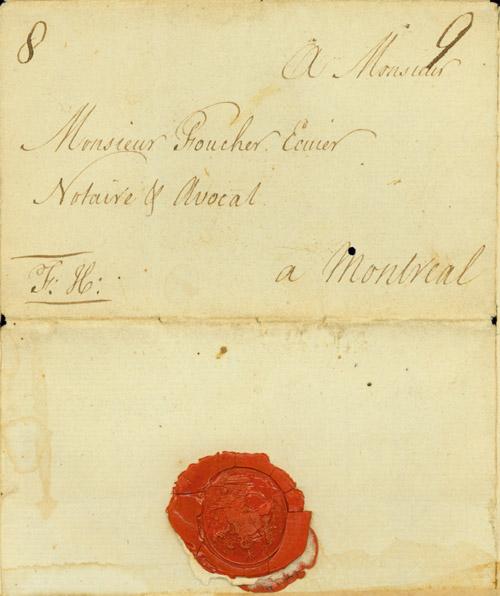 8
9
A Monsieur
Monsieur Foucher Ecuier
Notaire & Avocat
a Montreal
F: H: